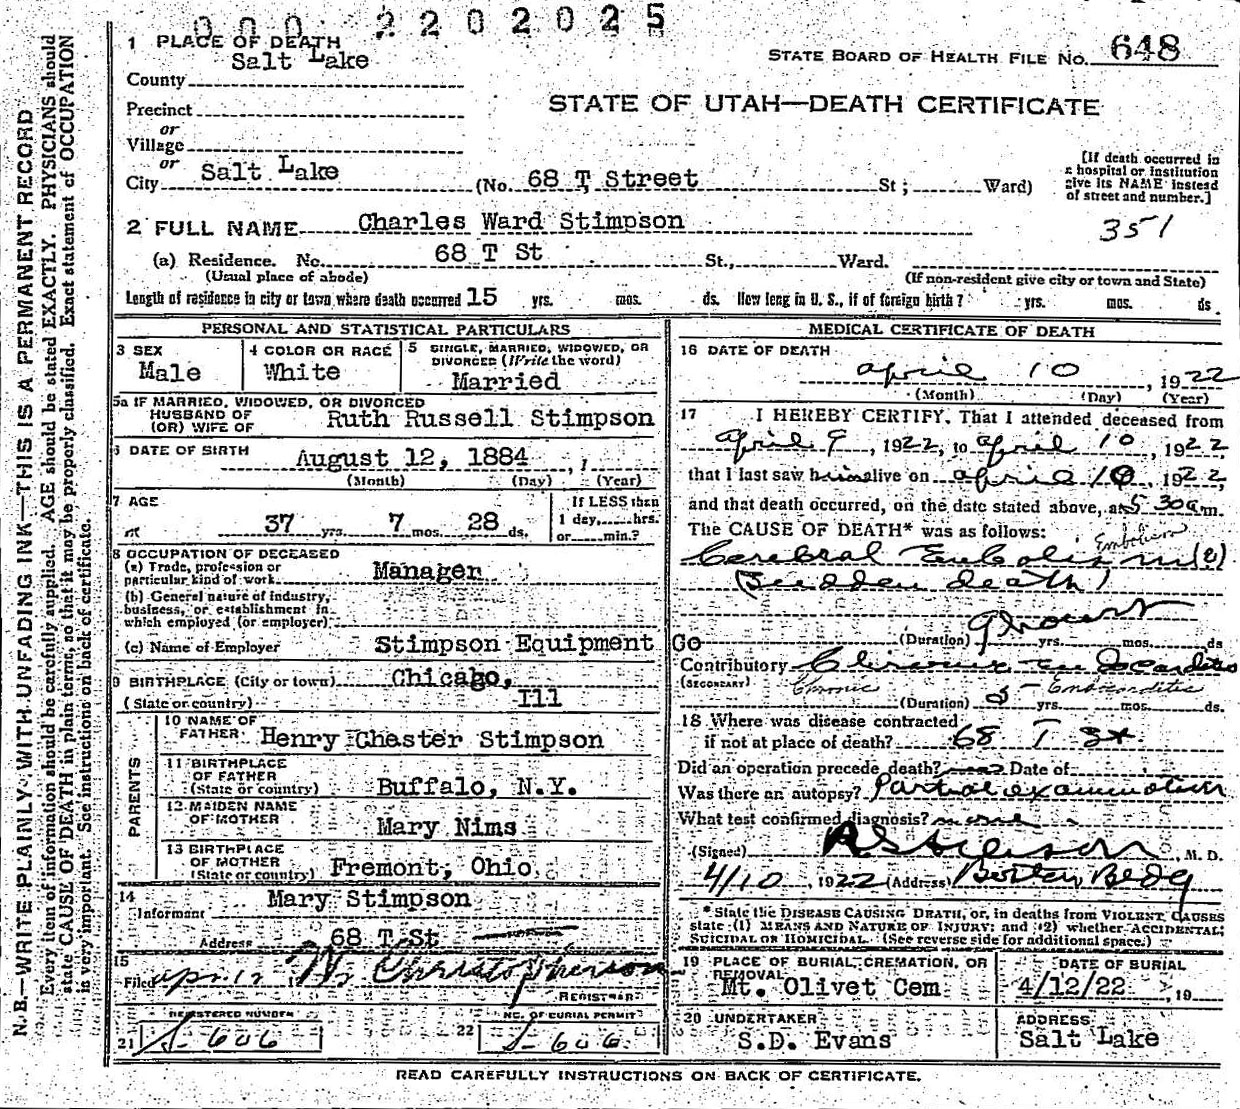 0002202025
1 PLACE OF DEATH
Salt Lake
County
STATE BOARD OF HEALTH FILE No. 648
STATE OF UTAH—DEATH CERTIFICATE
Precinct
or
Village
or
City Salt Lake (No. 68 T Street St; Ward)
[If death occurred in
a hospital or institution
give its NAME instead
of street and number.]
2 FULL NAME Charles Ward Stimpson
351
(a) Residence. No. 68 T St St., Ward.
(Usual place of abode) (If non-resident give city or town and State)
Length of residence in city or town where death occurred 15 yrs. mos. ds. How long in U. S., if of foreign birth? yrs. mos. ds.
PERSONAL AND STATISTICAL PARTICULARS
3 SEX
Male
4 COLOR OR RACE
White
5 SINGLE, MARRIED, WIDOWED, OR
DIVORCED (Write the word)
Married
5a IF MARRIED, WIDOWED, OR DIVORCED
HUSBAND OF
(OR) WIFE OF
Ruth Russell Stimpson
6 DATE OF BIRTH
August 12, 1884
(Month) (Day) (Year)
7 AGE
37 yrs. 7 mos. 28 ds.
If LESS then
1 day, hrs.
or min.?
8 OCCUPATION OF DECEASED
(a) Trade, profession or
particular kind of work
Manager
(b) General nature of industry,
business, or establishment in
which employed (or employer)
(c) Name of Employer Stimpson Equipment Co
9 BIRTHPLACE (City or town) Chicago,
(State or country) Ill
PARENTS
10 NAME OF
FATHER Henry Chester Stimpson
11 BIRTHPLACE
OF FATHER
(State or country) Buffalo, N.Y.
12 MAIDEN NAME
OF MOTHER Mary Nims
13 BIRTHPLACE
OF MOTHER
(State or country) Fremont, Ohio.
14
Informant Mary Stimpson
Address 68 T St
15
Filed apr 12 Christopherson
REGISTRAR
REGISTERED NUMBER
21 S-606
NO. OF BURIAL PERMIT
22 S-606
MEDICAL CERTIFICATE OF DEATH
16 DATE OF DEATH
april 10, 1922
(Month) (Day) (Year)
17 I HEREBY CERTIFY, That I attended deceased from
april 9, 1922, to april 10, 1922
that I last saw him alive on april 10, 1922,
and that death occurred, on the date stated above, at 5 30a m.
The CAUSE OF DEATH* was as follows:
Embolism
Cerebral Embolism (?)
(Sudden death)
(Duration) 9 hours yrs. mos. ds
Contributory Chronic Endocarditis
(SECONDARY) Chronic Endocarditis
(Duration) 5 yrs. mos. ds.
18 Where was disease contracted
if not at place of death? 68 T St
Did an operation precede death? no Date of
Was there an autopsy? Partial examination
What test confirmed diagnosis?
(Signed) M. D.
4/10, 1922 (Address) Boston Bldg
* State the DISEASE CAUSING DEATH, or, in deaths from VIOLENT CAUSES
state (1) MEANS AND NATURE OF INJURY; and (2) whether ACCIDENTAL;
SUICIDAL OR HOMICIDAL. (See reverse side for additional space.)
19 PLACE OF BURIAL, CREMATION, OR
REMOVAL
Mt. Olivet Cem
DATE OF BURIAL
4/12/22, 19
20 UNDERTAKER
S.D. Evans
ADDRESS
Salt Lake
READ CAREFULLY INSTRUCTIONS ON BACK OF CERTIFICATE.
N. B.—WRITE PLAINLY WITH UNFADING INK—THIS IS A PERMANENT RECORD
Every item of information should be carefully supplied. AGE should be stated EXACTLY. PHYSICIANS should
state CAUSE OF DEATH in plain terms, so that it may be properly classified. Exact statement of OCCUPATION
is very important. See instructions on back of certificate.